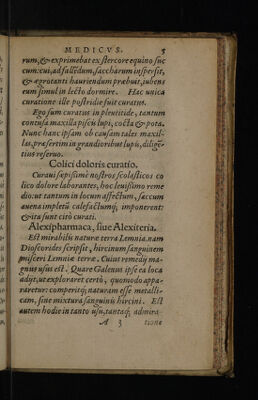 MEDICVS. 5
rum, & exprimebat ex stercore equino suc
cum: cui, ad fallēdum, saccharum inspersit,
& ægrotanti hauriendum præbuit, iubens
eum simul in lecto dormire. Hac unica
curatione ille postridie fuit curatus.
Ego sum curatus in pleuritide, tantum
contusa maxilla piscis lupi, cocta & pota.
Nunc hanc ipsam ob causam tales maxil-
las, præsertim in grandioribus lupis, diligē-
tius reseruo.
Colici doloris curatio.
Curaui sæpissimè nostros scolasticos co
lico dolore laborantes, hoc leuissimo reme
dio: ut tantum in locum affectum, saccum
auena impletū calefactumq́, imponerent:
& ita sunt citò curati.
Alexipharmaca, siue Alexiteria.
Est mirabilis naturæ terra Lemnia. nam
Dioscorides scripsit, hircinum sanguinem
misceri Lemniæ terræ. Cuius remedij ma-
gnus usus est. Quare Galenus ipse ea loca
adijt, ut exploraret certò, quomodo appa-
raretur: comperitq́; naturam esse metalli-
cam, siue mixtura sanguinis hircini. Est
autem hodie in tanto usu, tantaq́; admira-
A 3 tione